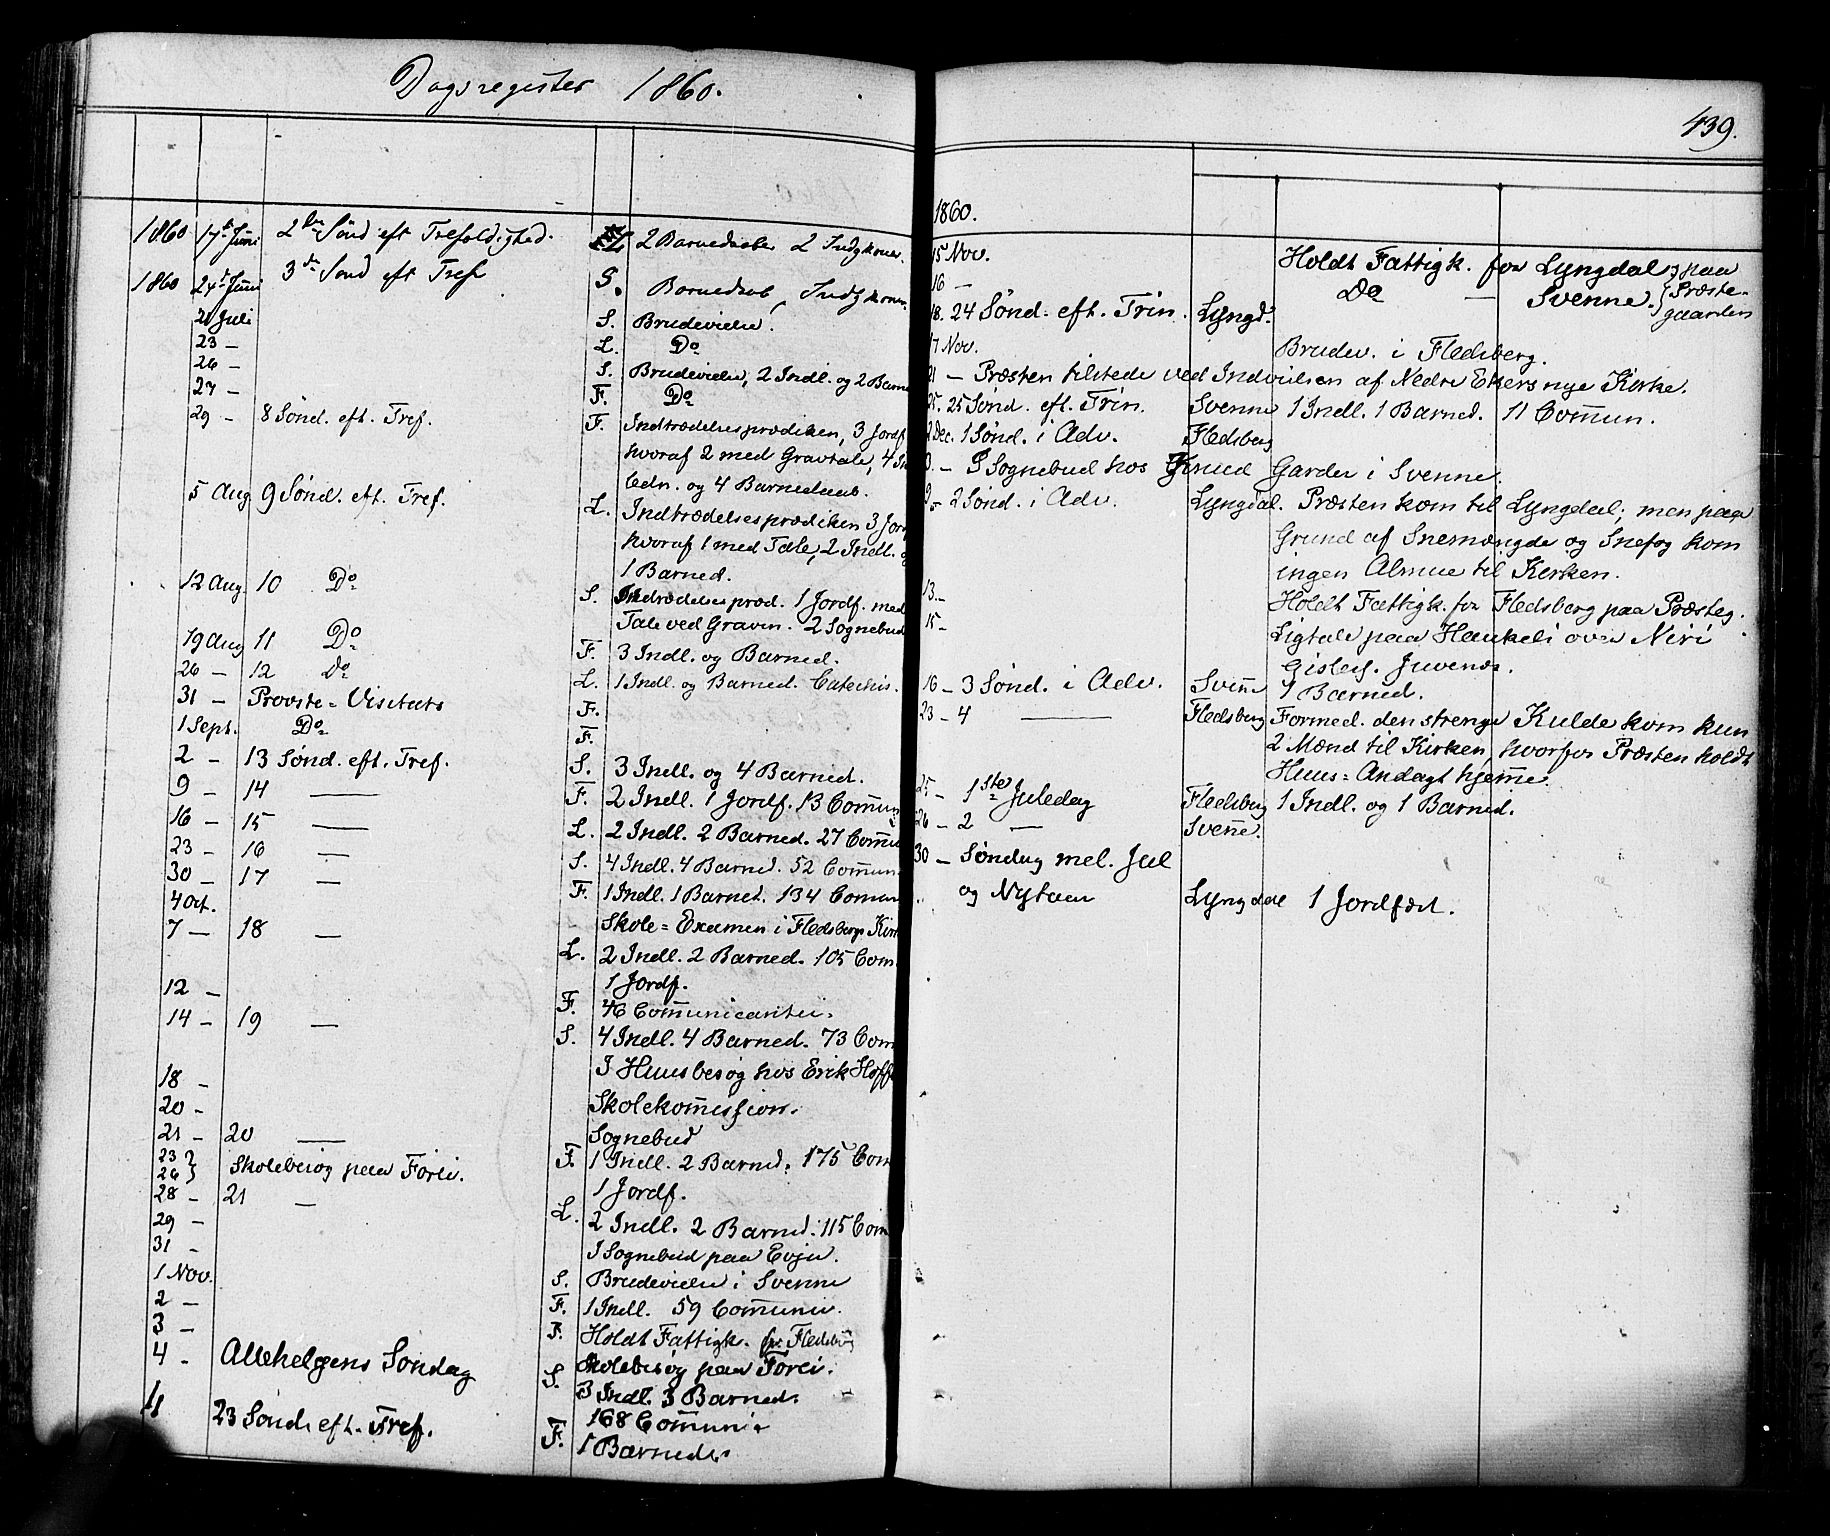 Dagsregister 1860.
1860 17de Juni 2den Sönd eft Trefoldighed. 2 Barnedaab 2 Indgkoner.
1860 24de Juni 3de Sönd eft Tref S. Barnedaab, Indgkoner
21 Juli S. Brudevielse.
23 — L. Do
26 — S. Brudevielse, 2 Indl. og 2 Barne
27 — F. Do
29 — 8 Sönd. eft. Tref. F. Indtrædelsesprædiken, 3 Jordf
hvoraf 2 med Gravtale, 4 In
ledn. og 4 Barnedaab.
5 Aug 9 Sönd. eft. Tref. L. Indtrædelsesprædiken 3 Jord
hvoraf 1 med Tale, 2 Indl. o
1 Barned.
12 Aug. 10 Do S. Indtrædelsespræd. 1 Jordf. med
Tale ved Graven. 2 Sognebud
19 Aug 11 Do F. 3 Indl. og Barned.
26 — 12 Do L. 1 Indl. og Barned. Catechis.
31 — Provste=Visitats F.
1 Sept. Do F.
2 — 13 Sönd. eft. Tref. S. 3 Indl. og 4 Barned.
9 — 14 — F. 2 Indl. 1 Jordf. 13 Com̄un
16 — 15 — L. 2 Indl. 2 Barned. 27 Com̄u
23 — 16 — S. 4 Indl. 4 Barned. 52 Com̄un.
30 — 17 — F. 1 Indl. 1 Barned. 134 Com̄un
4 Oct. Skole=Examen i Flesbergs Kir
7 — 18 — L. 2 Indl. 2 Barned. 105 Com
1 Jordf.
12 — F. 46 Com̄unicanter.
14 — 19 — S. 4 Indl. 4 Barned. 73 Com
18 — I Huusbesøg hos Erik Hoff
20 — Skolekom̄ission.
Sognebud
21 — 20 — F. 1 Indl. 2 Barned. 175 Com
23 } 26 } Skolebesøg paa Forei.
1 Jordf.
28 — 21 — L. 2 Indl. 2 Barned. 115 Com
29 — I Sognebud paa Evju.
31 — S. Brudevielse i Svenne
1 Nov. F. 1 Indl. 59 Com̄unic.
2 — F. Holdt Fattigk. for Flesb
3 — Skolebesøg paa Forei.
4 — Allehelgens Söndag S. 3 Indl. 3 Barned.
168 Com̄unic
11 23 Sönd. eft. Tref. F. 1 Barned.
439.
1860.
15 Nov. Holdt Fattigk. for Lyngdal } paa
16 — Do — Svenne. } Præste-
gaarden
18. 24 Sønd. eft. Trin. Lyngd.
17 Nov. Brudev. i Flesberg.
21 — Præsten tilstede ved Indvielsen af Nedre Ekers nye Kirke.
25. 25 Sønd. eft. Trin. Svenne 1 Indl. 1 Barned. 11 Com̄un.
2 Dec. 1 Sønd. i Adv. Flesberg
— I Sognebud hos Knud Garder i Svenne.
9 — 2 Sønd. i Adv. Lyngdal. Præsten kom til Lyngdal; men paa
Grund af Snemængde og Snefog kom
ingen Almue til Kirken.
13 — Holdt Fattigk. for Flesberg paa Præsteg.
15 — Ligtale paa Haukeli over Niri
Gislesd. Juvenæs.
16 — 3 Sønd. i Adv. Sven̄e 1 Barned.
23 — 4 — Flesberg Formed. den strenge Kulde kom kun
2 Mænd til Kirken, hvorfor Præsten holdt
Huus=Andagt hjem̄e.
25 — 1ste Juledag Flesberg 1 Indl. og 1 Barned.
26 — 2 — Sven̄e.
30 — Søndag mel. Jul
og Nytaar Lyngdal 1 Jordfæst.